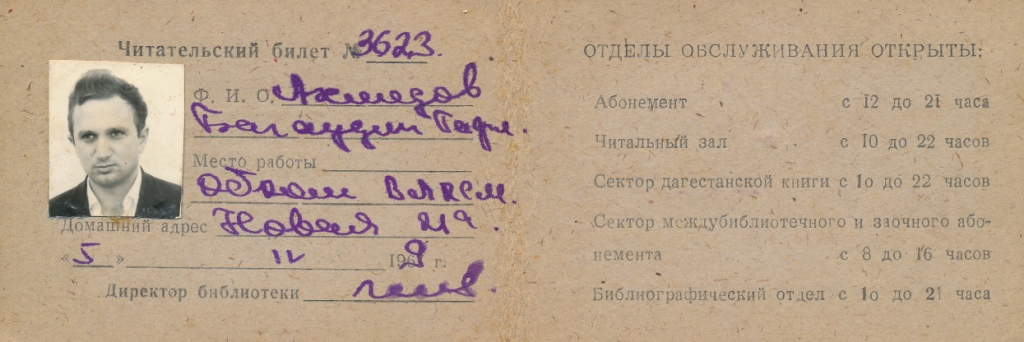 Читательский билет № 3623.
Ф. И. О. Ахмедов
Багаудин Гаджи.
Место работы
Обком ВЛКСМ.
Домашний адрес Новая
«5» IV 1969 г.
Директор библиотеки
ОТДЕЛЫ ОБСЛУЖИВАНИЯ ОТКРЫТЫ:
Абонемент с 12 до 21 часа
Читальный зал с 10 до 22 часов
Сектор дагестанской книги с 1о до 22 часов
Сектор междубиблиотечного и заочного або-
немента с 8 до 16 часов
Библиографический отдел с 1о до 21 часа